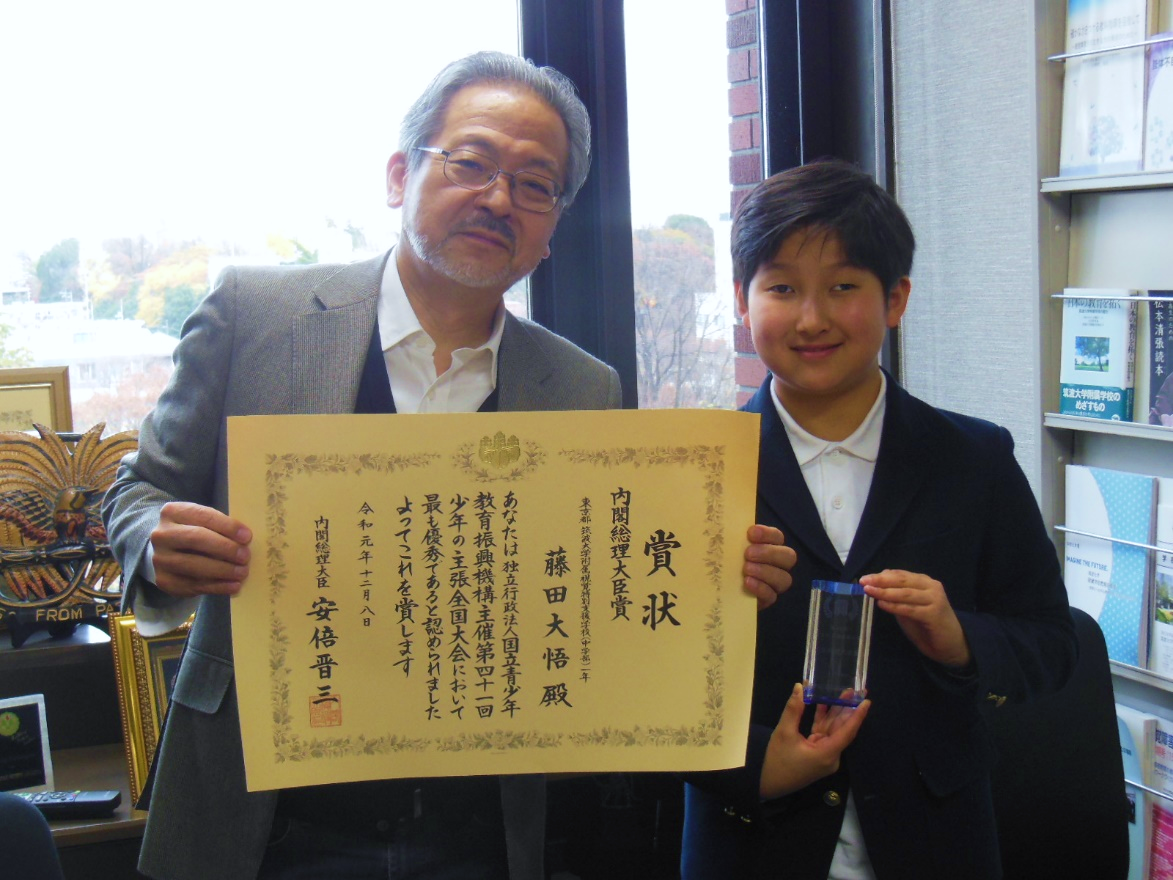 賞状
内閣総理大臣賞
東京都 筑波大学附属視覚特別支援学校(中学部)二年
藤田大悟 殿
あなたは独立行政法人国立青少年
教育振興機構主催第四十一回
少年の主張全国大会において
最も優秀であると認められました
よってこれを賞します
令和元年十二月八日
内閣総理大臣 安倍晋三
FROM
松本清張読本
筑波大学附属学校の
めざすもの
IMAGINE THE FUTURE.